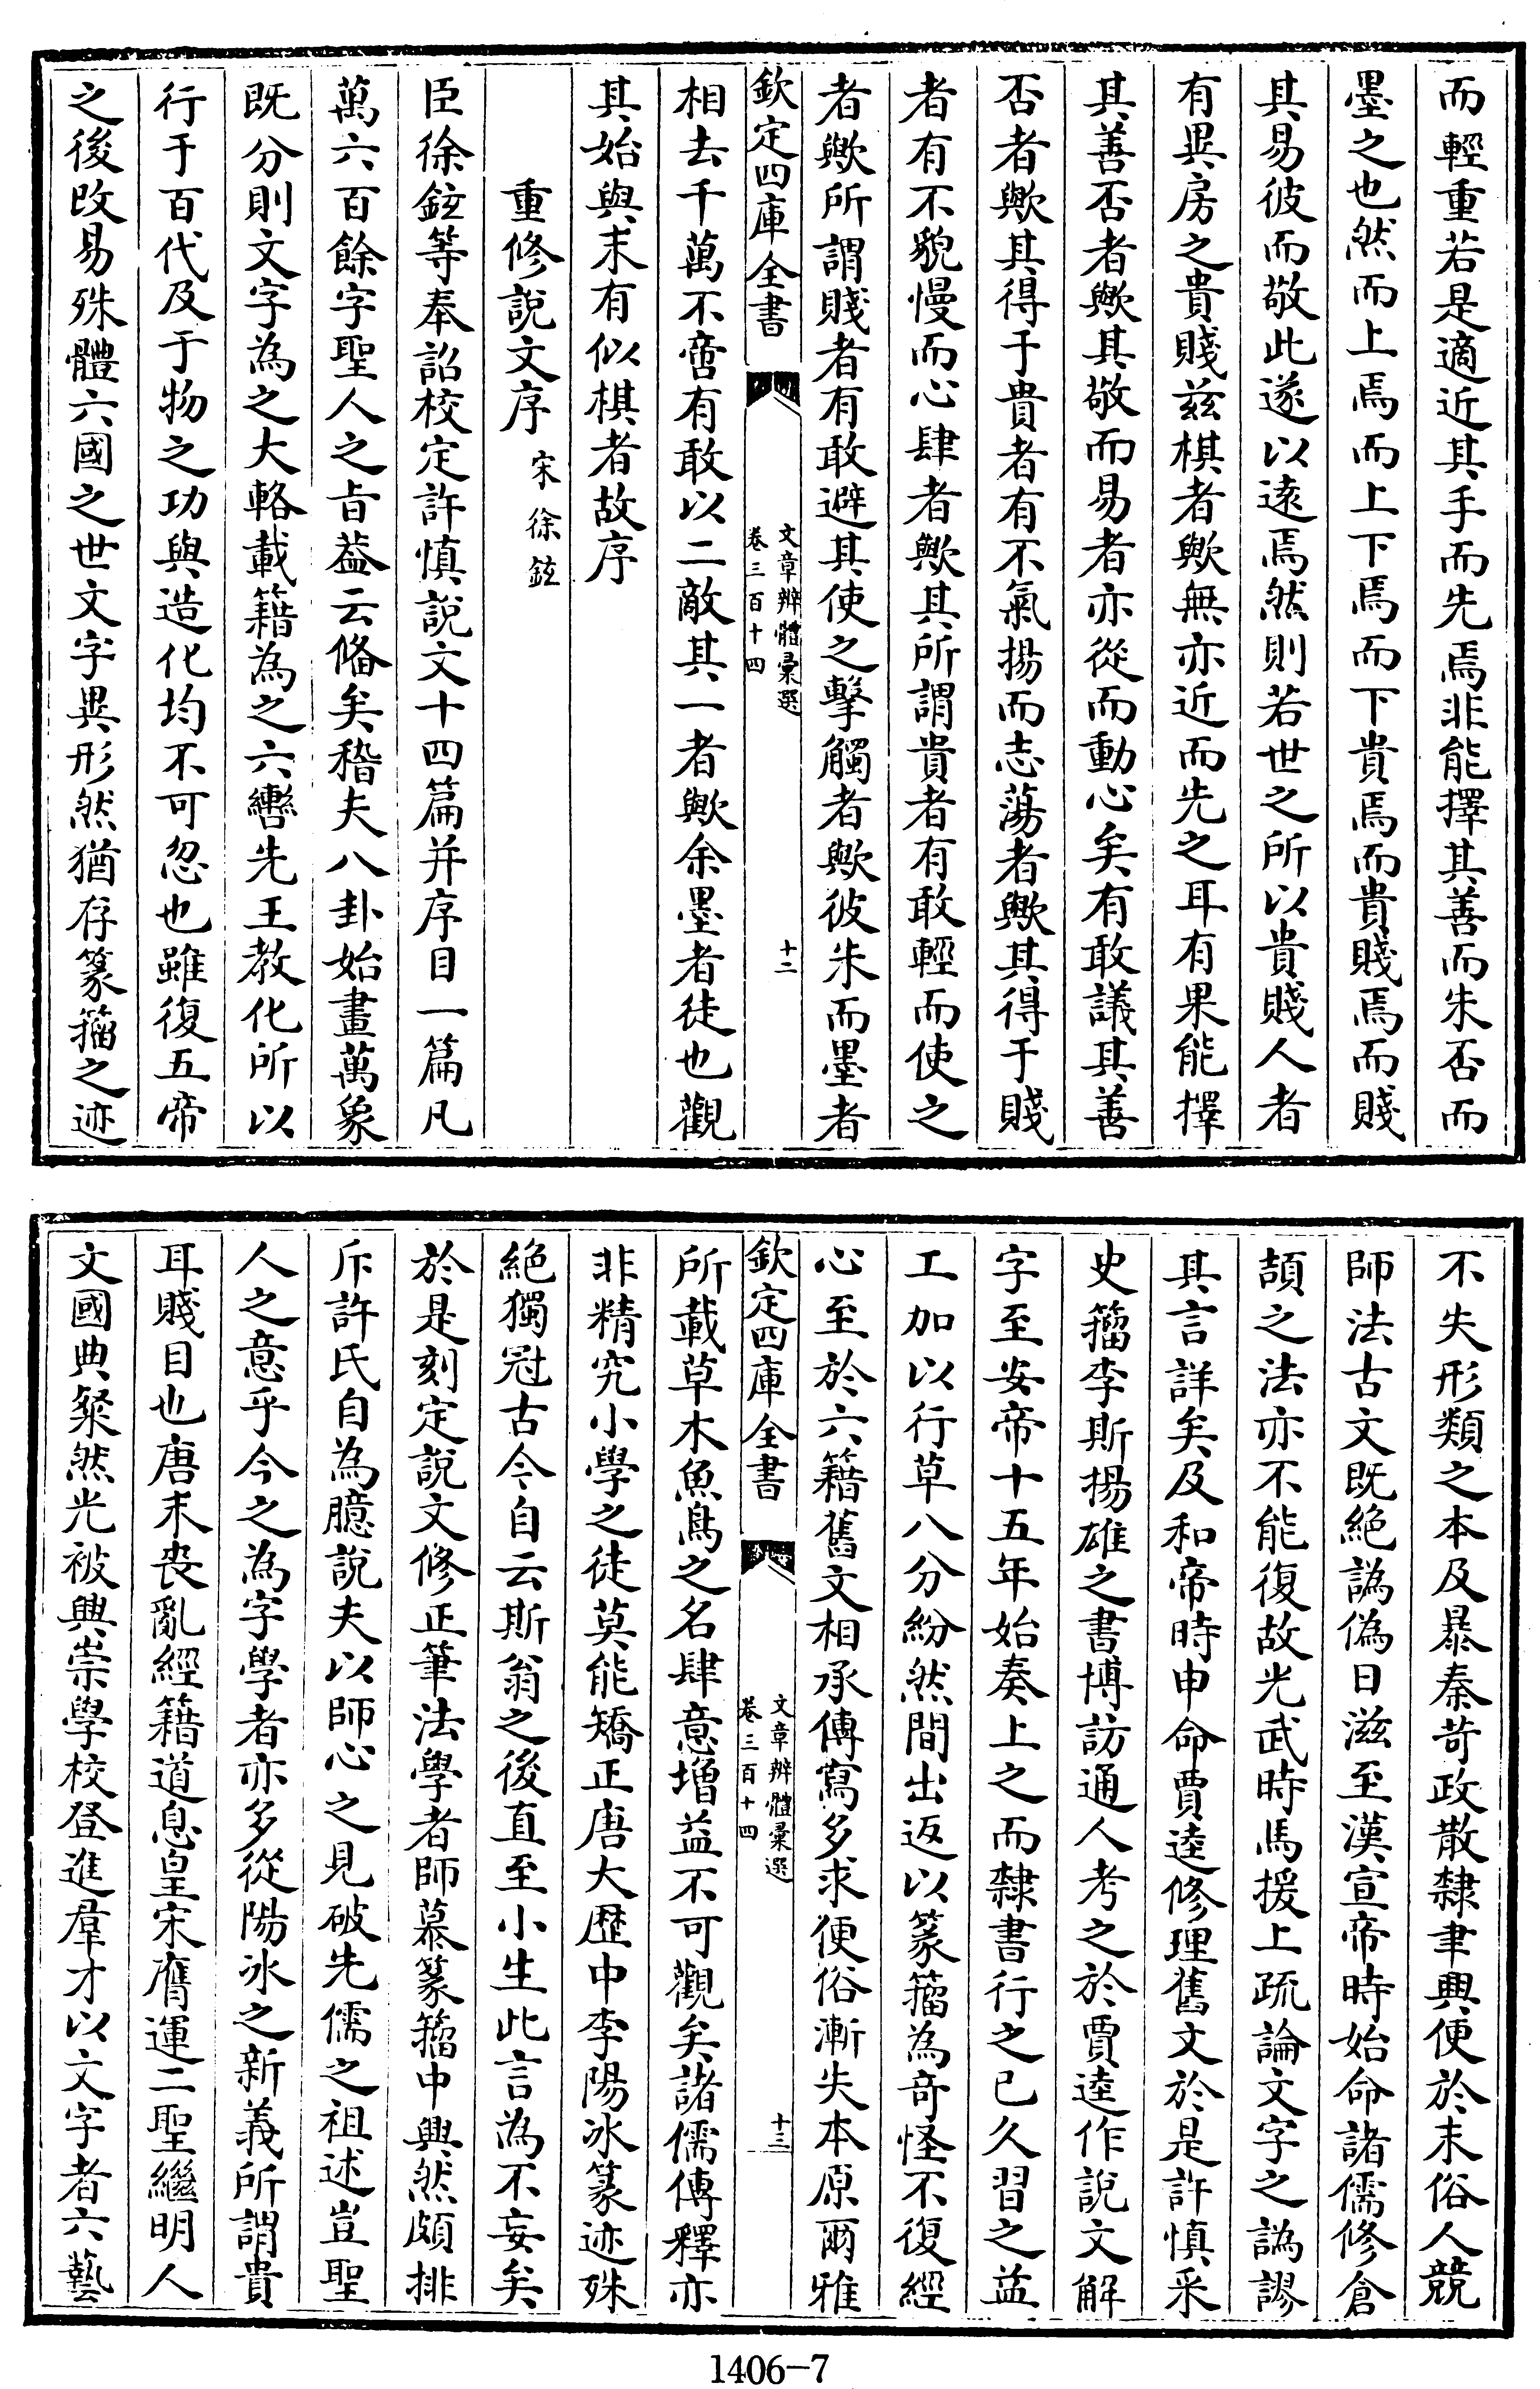 而輕重若是適近其手而先焉非能擇其善而朱否而
墨之也然而上焉而上下焉而下貴焉而貴賤焉而賤
其易彼而敬此遂以遠焉然則若世之所以貴賤人者
有異房之貴賤兹棋者歟無亦近而先之耳有果能擇
其善否者歟其敬而易者亦從而動心矣有敢議其善
否者歟其得于貴者有不氣揚而志蕩者歟其得于賤
者有不貌慢而心肆者歟其所謂貴者有敢輕而使之
者歟所謂賤者有敢避其使之擊觸者歟彼朱而墨者
欽定四庫全書
文章辨體彙選
卷三百十四
十二
相去千萬不啻有敢以二敵其一者歟余墨者徒也觀
其始與末有似棋者故序
重修說文序 宋徐鉉
臣徐鉉等奉詔校定許慎說文十四篇并序目一篇凡
萬六百餘字聖人之旨葢云備矣稽夫八卦始畫萬象
既分則文字為之大輅載籍為之六轡先王教化所以
行于百代及于物之功與造化均不可忽也雖復五帝
之後改易殊體六國之世文字異形然猶存篆籀之迹
不失形類之本及暴秦苛政散隸聿興便於末俗人競
師法古文既絕譌偽日滋至漢宣帝時始命諸儒修倉
頡之法亦不能復故光武時馬援上疏論文字之譌謬
其言詳矣及和帝時申命賈逵修理舊文於是許慎采
史籀李斯揚雄之書博訪通人考之於賈逵作說文解
字至安帝十五年始奏上之而隸書行之已久習之益
工加以行草八分紛然間出返以篆籀為奇怪不復經
心至於六籍舊文相承傳寫多求便俗漸失本原爾雅
欽定四庫全書
文章辨體彙選
卷三百十四
十三
所載草木魚鳥之名肆意增益不可觀矣諸儒傳釋亦
非精究小學之徒莫能矯正唐大歴中李陽冰篆迹殊
絕獨冠古今自云斯翁之後直至小生此言為不妄矣
於是刻定說文修正筆法學者師慕篆籀中興然頗排
斥許氏自為臆說夫以師心之見破先儒之祖述豈聖
人之意乎今之為字學者亦多從陽冰之新義所謂貴
耳賤目也唐末喪亂經籍道息皇宋膺運二聖繼明人
文國典粲然光被興崇學校登進羣才以文字者六藝
1406-7